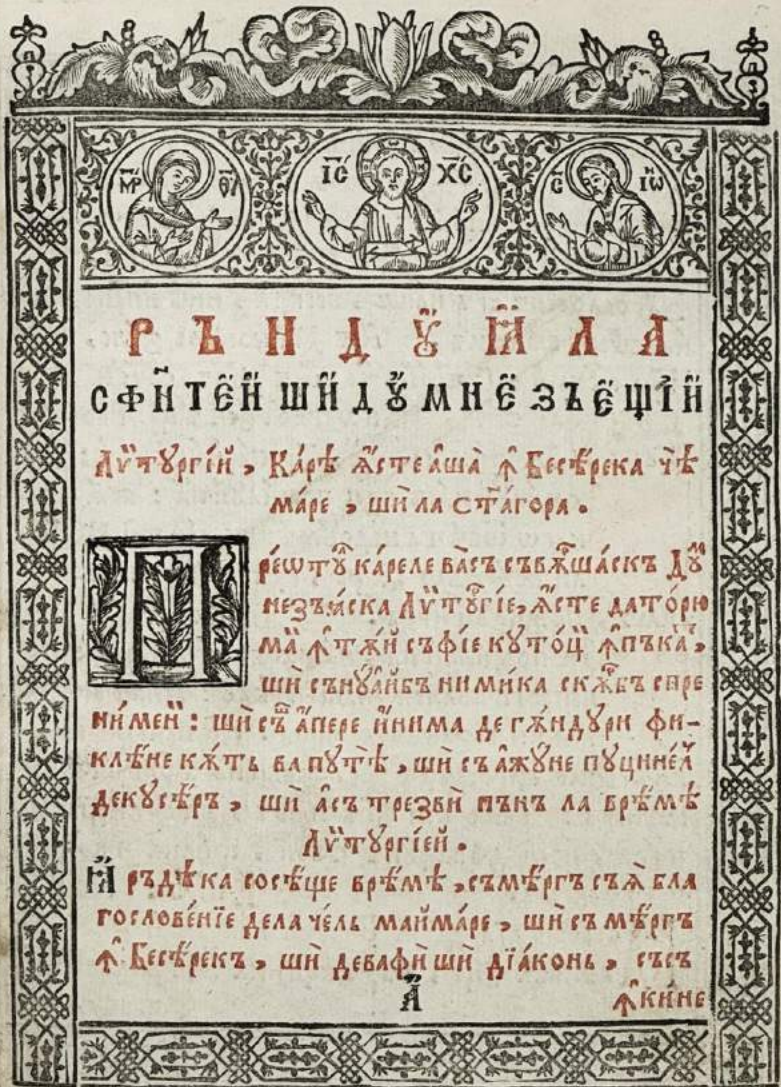 МР ѲУ ІС ХС С ІѠ
РЪНДꙊꙖЛА
СФИТЕЙ ШИ ДꙊМНЕЗЪЕЩІЙ
Лѵтꙋргїй, Каре ꙗсте аша ꙟ Бесѣрека чѣ
маре, ши ла стагора.
Преѡтꙋ кареле васъ съвѫшаскъ Дꙋ
незъꙗска Лѵтꙋгїе, ꙗсте даторю
ма ꙟтѫй съфїе кꙋтоц ꙟпъка,
ши сънꙋайбъ нимика скѫбъ спре
нимен: ши съ апере инима де гѫндꙋри фи-
клѣне кѫть ва пꙋтѣ, ши съ ажꙋне пꙋцинел
декꙋсѣръ, ши асъ трезви пънъ ла врѣмѣ
Лѵтꙋргїей.
Ꙗръдѣка сосѣще врѣмѣ, съмѣргъ съꙗ бла
гословенїе дела чель маймаре, ши съ мѣргъ
ꙟ Бесѣрекъ, ши девафи ши дїаконь, съсъ
А ꙟкине